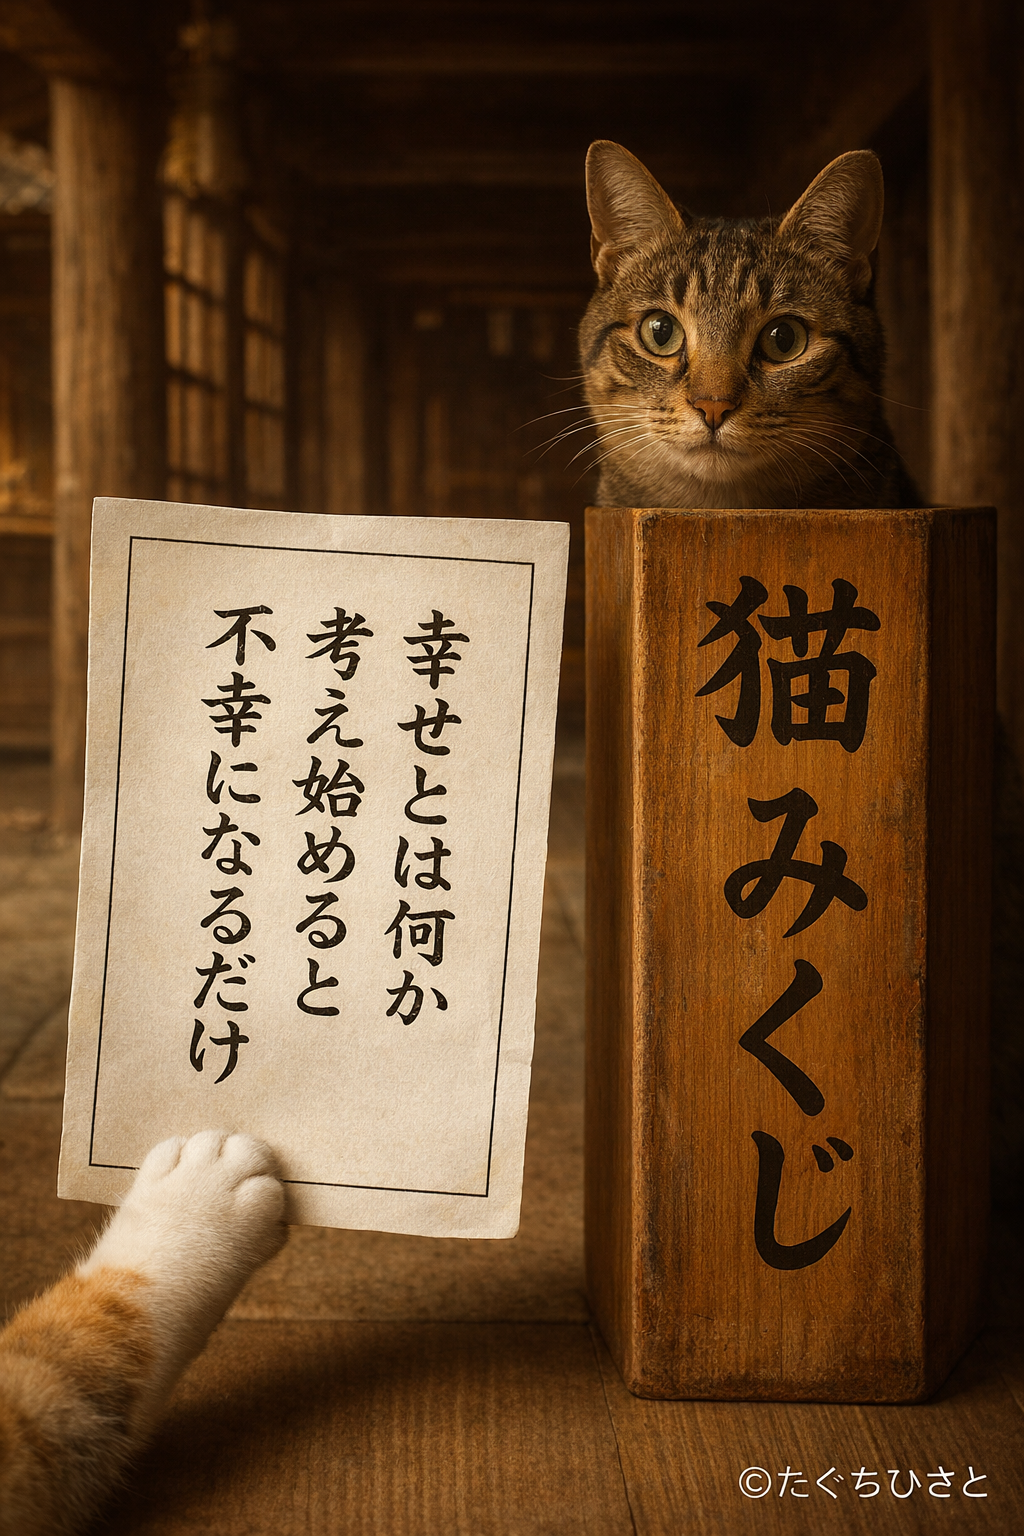 幸せとは何か
考え始めると
不幸になるだけ
猫みくじ
©たぐちひさと